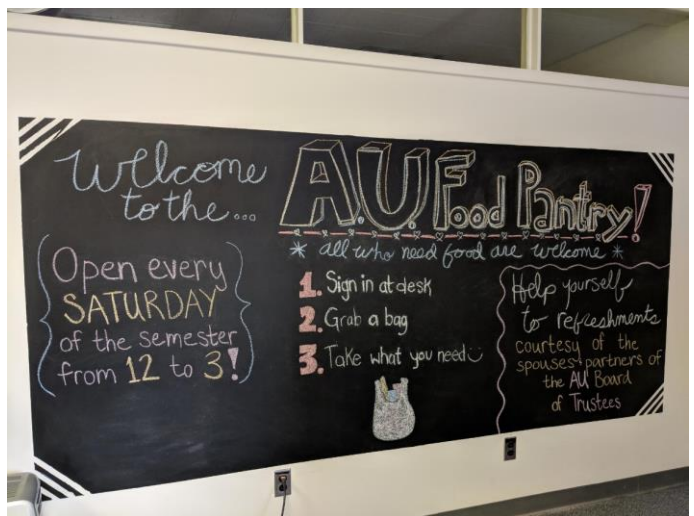 Welcome
to the...
A.U. Food Pantry!
* all who need food are welcome *
Open every
SATURDAY
of the semester
from 12 to 3!
1. Sign in at desk
2. Grab a bag
3. Take what you need
Help yourself
to refreshments
courtesy of the
spouses+partners of
the AU Board
of Trustees